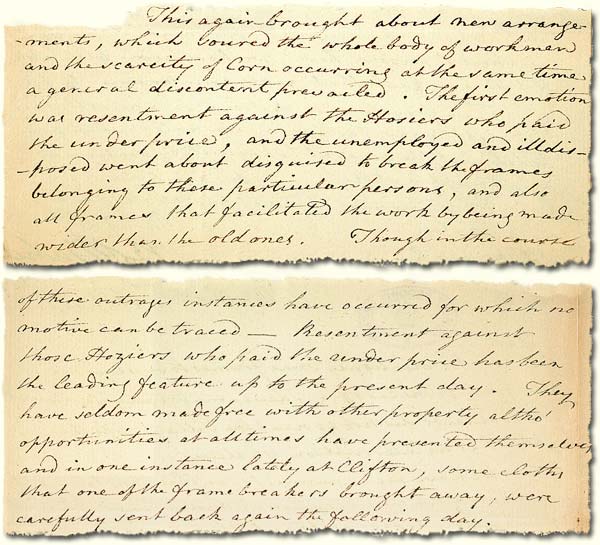 This again brought about new arrange-
ments, which soured the whole body of workman
and the scarcity of Corn occurring at the same time
a general discontent prevailed. The first emotion
was resentment against the Hosiers who paid
the under price, and the unemployed and illdis-
-posed went about disguised to break the frames
belonging to these particular persons, and also
all frames that facilitated the work by being made
wider than the old ones. Though in the course
of these outrages instances have occurred for which no
motive can be traced — Resentment against
those Hoziers who paid the under price has been
the leading feature up to the present day. They
have seldom made free with other property altho'
opportunities at all times have presented themselves
and in one instance lately at Clifton, some cloths
that one of the frame breakers brought away, were
carefully sent back again the following day.